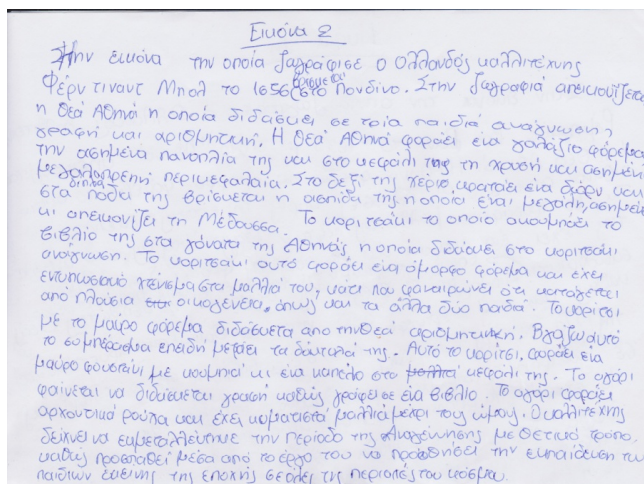 Εικόνα 2
Στην εικόνα την οποία ζωγράφισε ο Ολλανδός καλλιτέχνης
Φέρντιναντ Μπολ το 1656 βρίσκεται στο Λονδίνο. Στην ζωγραφιά απεικονίζεται
η Θεά Αθηνά η οποία διδάσκει σε τρία παιδιά ανάγνωση,
γραφή και αριθμητική. Η Θεά Αθηνά φοράει ένα γαλάζιο φόρεμα
την ασημένια πανοπλία της και στο κεφάλι της τη χρυσή και ασημένια
μεγαλοπρεπή περικεφαλαία. Στο δεξί της χέρι κρατάει ένα δόρυ και
δίπλα στα πόδια της βρίσκεται η ασπίδα της η οποία είναι μεγάλη, ασημένια
κι απεικονίζει τη Μέδουσσα. Το κοριτσάκι το οποίο ακουμπάει το
βιβλίο της στα γόνατα της Αθηνάς, η οποία διδάσκει στο κοριτσάκι
ανάγνωση. Το κοριτσάκι αυτό φοράει ένα όμορφο φόρεμα και έχει
εντυπωσιακό χτένισμα στα μαλλιά του, κάτι που φανερώνει ότι κατάγεται
από πλούσια οικογένεια, όπως και τα άλλα δύο παιδιά. Το κορίτσι
με το μαύρο φόρεμα διδάσκεται από την Θεά αριθμητική. Βγάζω αυτό
το συμπέρασμα επειδή μετράει τα δάκτυλά της. Αυτό το κορίτσι, φοράει ένα
μαύρο φουστάνι με κουμπιά κι ένα καπέλο στο κεφάλι της. Το αγόρι
φαίνεται να διδάσκεται γραφή καθώς γράφει σε ένα βιβλίο. Το αγόρι φοράει
αρχοντικά ρούχα και έχει κυματιστά μαλλιά μέχρι τους ώμους. Ο καλλιτέχνης
δείχνει να εμεταλλεύτηκε την περίοδο της Αναγέννησης με θετικό τρόπο
καθώς προσπαθεί μέσα από το έργο του να προωθήσει την εκπαίδευση των
παιδιών εκείνης της εποχής σε όλες της περιοχές του κόσμου.